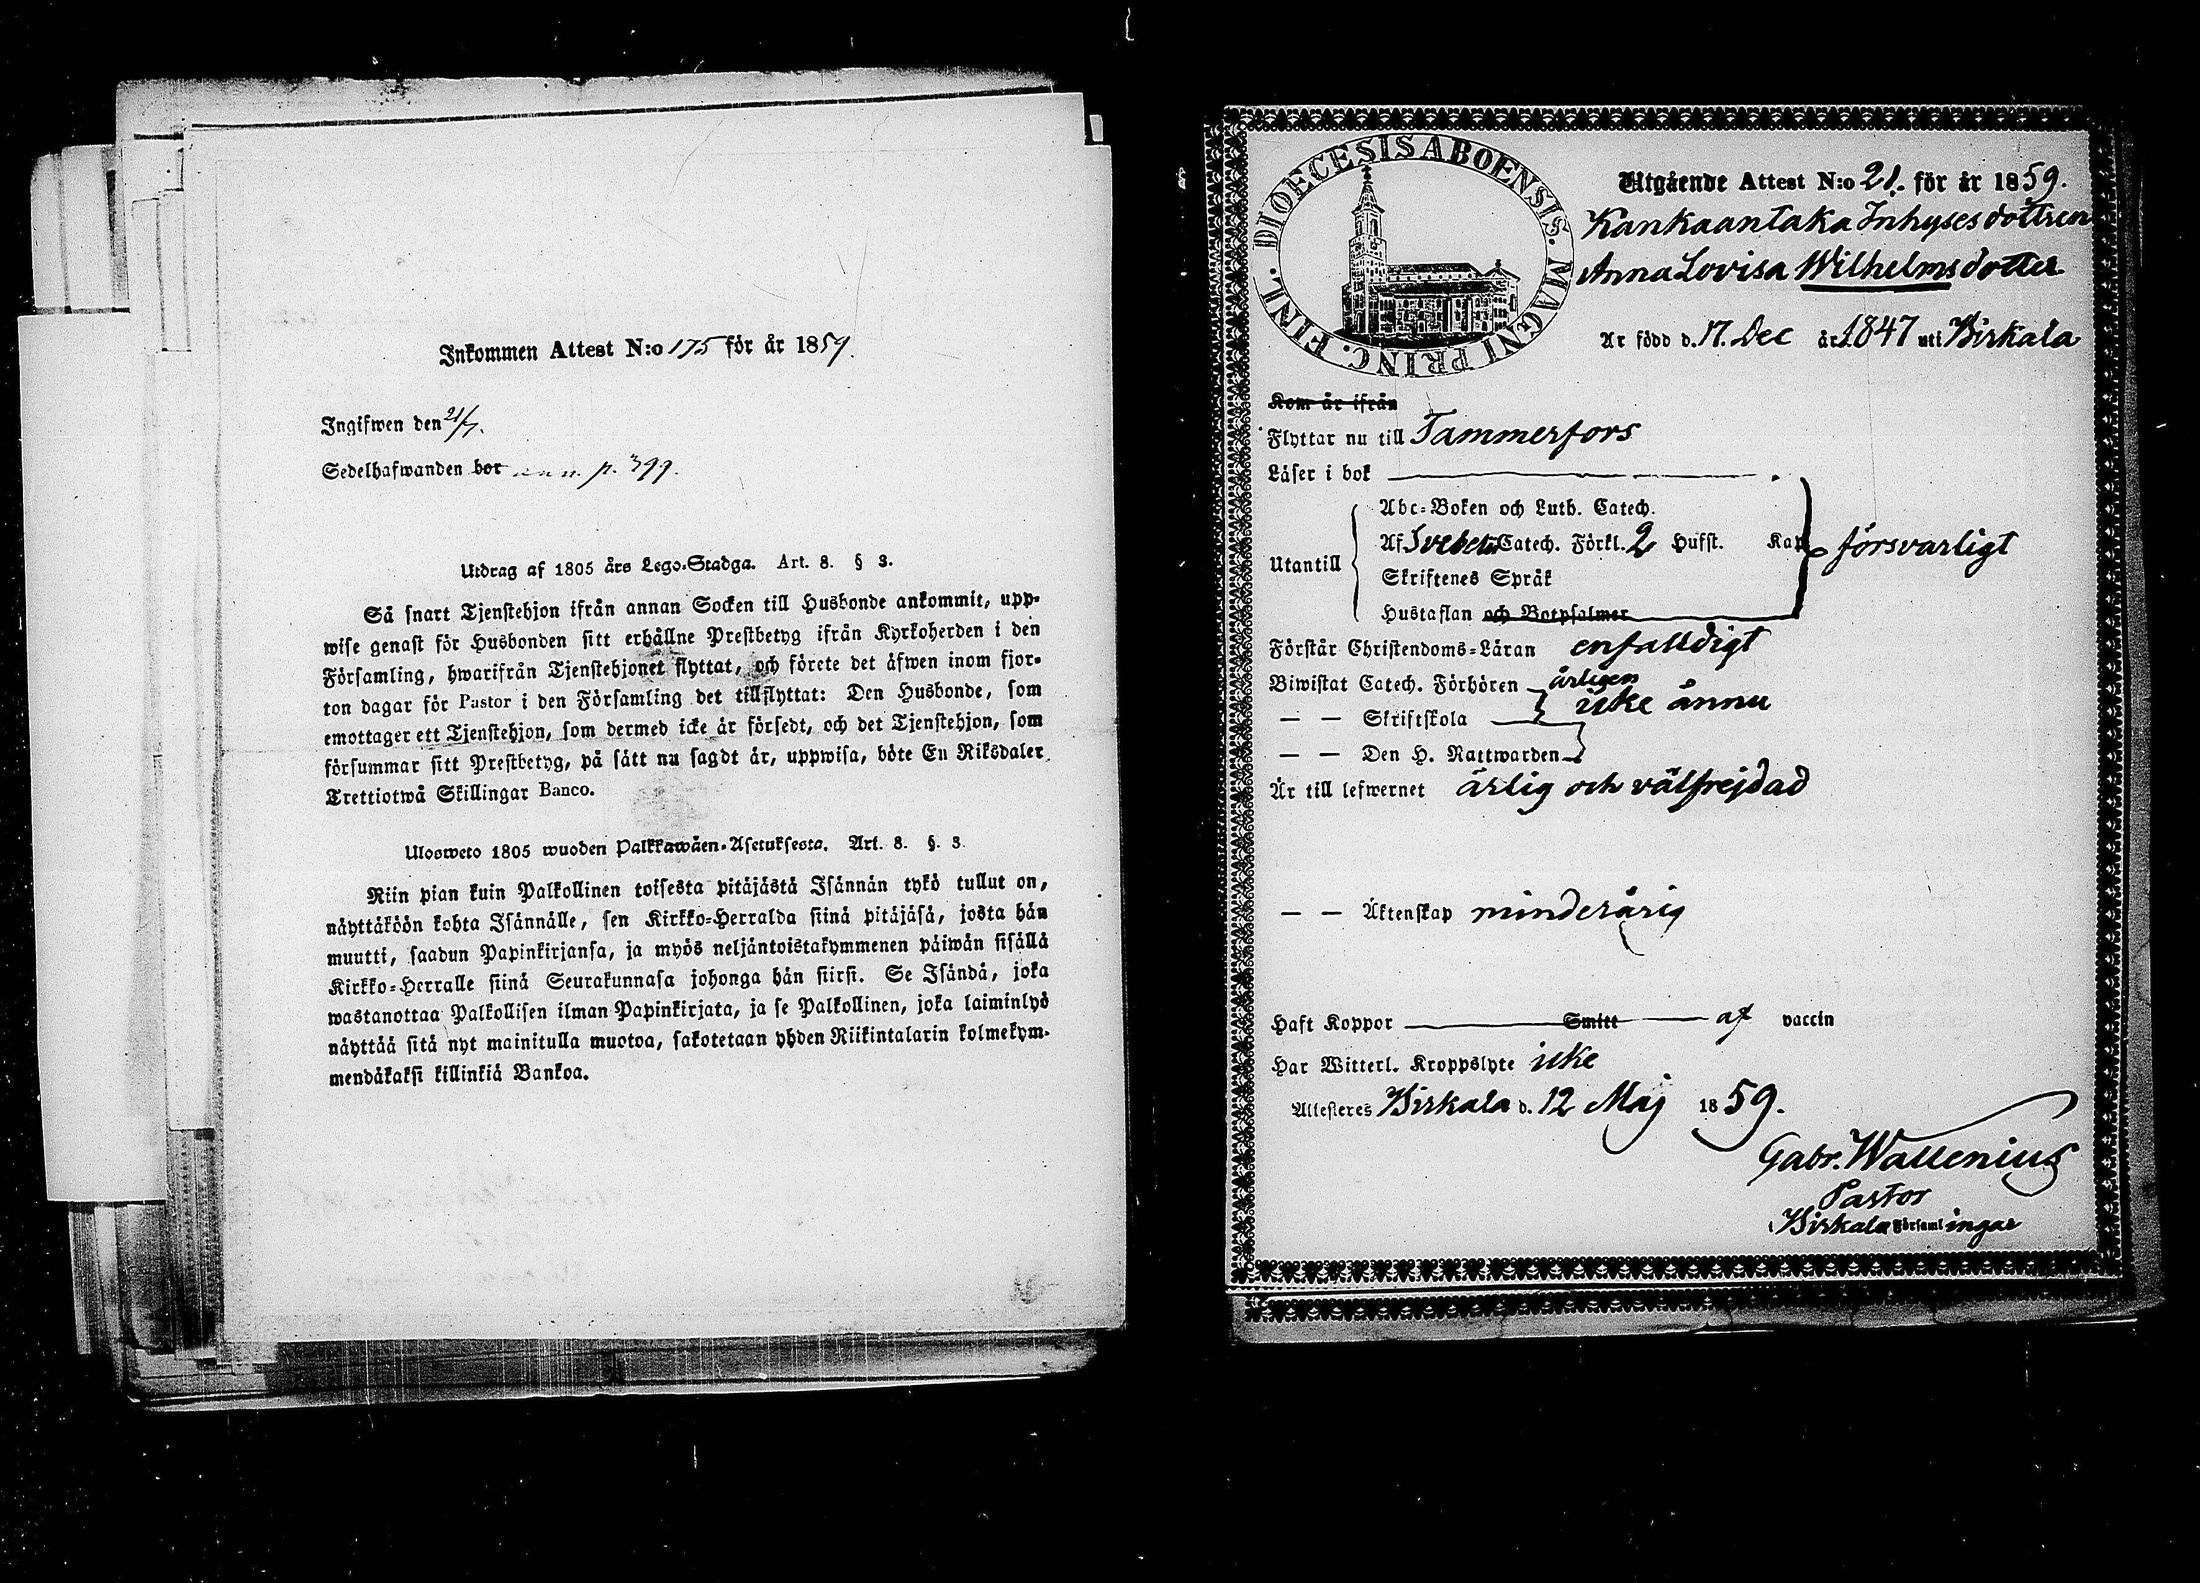 Inkommen Attest N:o 175 för år 1859.
Ingifwen den 21/7.
Sedelhafwanden bor p. 399.
Utdrag af 1805 års Lego-Stadga. Art. 8. § 3.
Så snart Tjenstehjon ifrån annan Socken till Husbonde ankommit, upp-
wise genast för Husbonden sitt erhållne Prestbetyg ifrån Kyrkoherden i den
Församling, hwarifrån Tjenstehjonet flyttat, och förete det äfwen inom fjor-
ton dagar för Pastor i den Församling det tillflyttat: Den Husbonde, som
emottager ett Tjenstehjon, som dermed icke är försedt, och det Tjenstehjon, som
försummar sitt Prestbetyg, på sätt nu sagdt är, uppwisa, böte En Riksdaler
Trettiotwå Skillingar Banco.
Ulosweto 1805 wuoden Palkkawäen-Asetuksesta. Art. 8. §. 3.
Niin pian kuin Palkollinen toisesta pitäjästä Isännän tykö tullut on,
näyttäköön kohta Isännälle, sen Kirkko-Herralda siinä pitäjäsä, josta hän
muutti, saadun Papinkirjansa, ja myös neljäntoistakymmenen päiwän sisällä
Kirkko-Herralle siinä Seurakunnasa johonga hän siirsi. Se Isändä, joka
wastanottaa Palkollisen ilman Papinkirjata, ja se Palkollinen, joka laiminlyö
näyttää sitä nyt mainitulla muotoa, sakotetaan yhden Riikintalarin kolmekym-
mendäkaksi killinkiä Bankoa.
DIOECESIS ABOENSIS. MAGNI PRINC. FINL.
Utgående Attest N:o 21. för år 1859.
Kankaantaka Inhysesdottren
Anna Lovisa Wilhelmsdotter
Är född d. 17. Dec år 1847 uti Birkala
Kom år ifrån
Flyttar nu till Tammerfors
Läser i bok
Abc-Boken och Luth. Catech.
Utantill Af Svebelii Catech. Förkl. 2 Hufst. Kan försvarligt
Skriftenes Språk
Hustaflan och Botpsalmer
Förstår Christendoms-Läran enfalldigt
Biwistat Catech. Förhören årligen
— — Skriftskola icke ännu
— — Den H. Nattwarden
Är till lefwernet ärlig och välfrejdad
— — Äktenskap minderårig
Haft Koppor Smitt af vaccin
Har Witterl. Kroppslyte icke
Attesteres Birkala d. 12 Maj 1859.
Gabr. Wallenius
Pastor
Birkala Församlingar